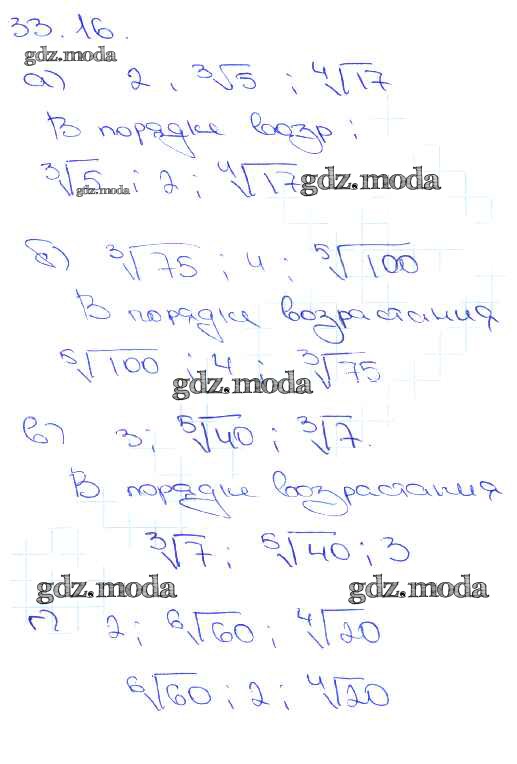 33.16.
gdz.moda
а) 2, ∛5; ∜17
В порядке возр;
∛5; 2; ∜17
gdz.moda gdz.moda
б) ∛75; 4; ⁵√100
В порядке возрастания
⁵√100; 4; ∛75
gdz.moda
в) 3; ⁵√40; ∛7.
В порядке возрастания
∛7; ⁵√40; 3
gdz.moda gdz.moda
г) 2; ⁶√60; ∜20
⁶√60; 2; ∜20